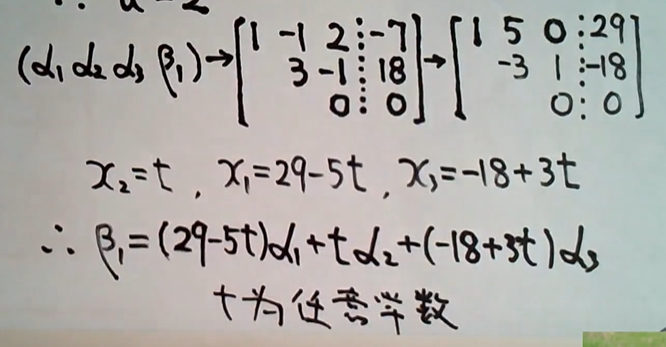 ∴ a=2
(α₁ α₂ α₃ β₁) → [1 -1 2 ⋮ -7; 3 -1 ⋮ 18; 0 ⋮ 0] → [1 5 0 ⋮ 29; -3 1 ⋮ -18; 0 ⋮ 0]
x₂=t, x₁=29-5t, x₃=-18+3t
∴ β₁=(29-5t)α₁+tα₂+(-18+3t)α₃
t为任意常数